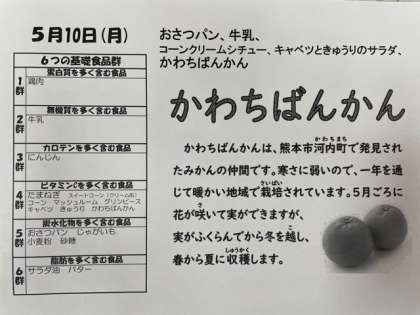 5月10日(月)
6つの基礎食品群
1群
蛋白質を多く含む食品
鶏肉
2群
無機質を多く含む食品
牛乳
3群
カロテンを多く含む食品
にんじん
4群
ビタミンCを多く含む食品
たまねぎ スイートコーン(クリーム缶)
コーン マッシュルーム グリンピース
キャベツ きゅうり かわちばんかん
5群
炭水化物を多く含む食品
おさつパン じゃがいも
小麦粉 砂糖
6群
脂肪を多く含む食品
サラダ油 バター
おさつパン、牛乳、
コーンクリームシチュー、キャベツときゅうりのサラダ、
かわちばんかん
かわちばんかん
かわちばんかんは、熊本市河内町で発見され
かわちまち
たみかんの仲間です。寒さに弱いので、一年を通
じて暖かい地域で栽培されています。5月ごろに
さいばい
花が咲いて実ができますが、
さ
実がふくらんでから冬を越し、
こ
春から夏に収穫します。
しゅうかく